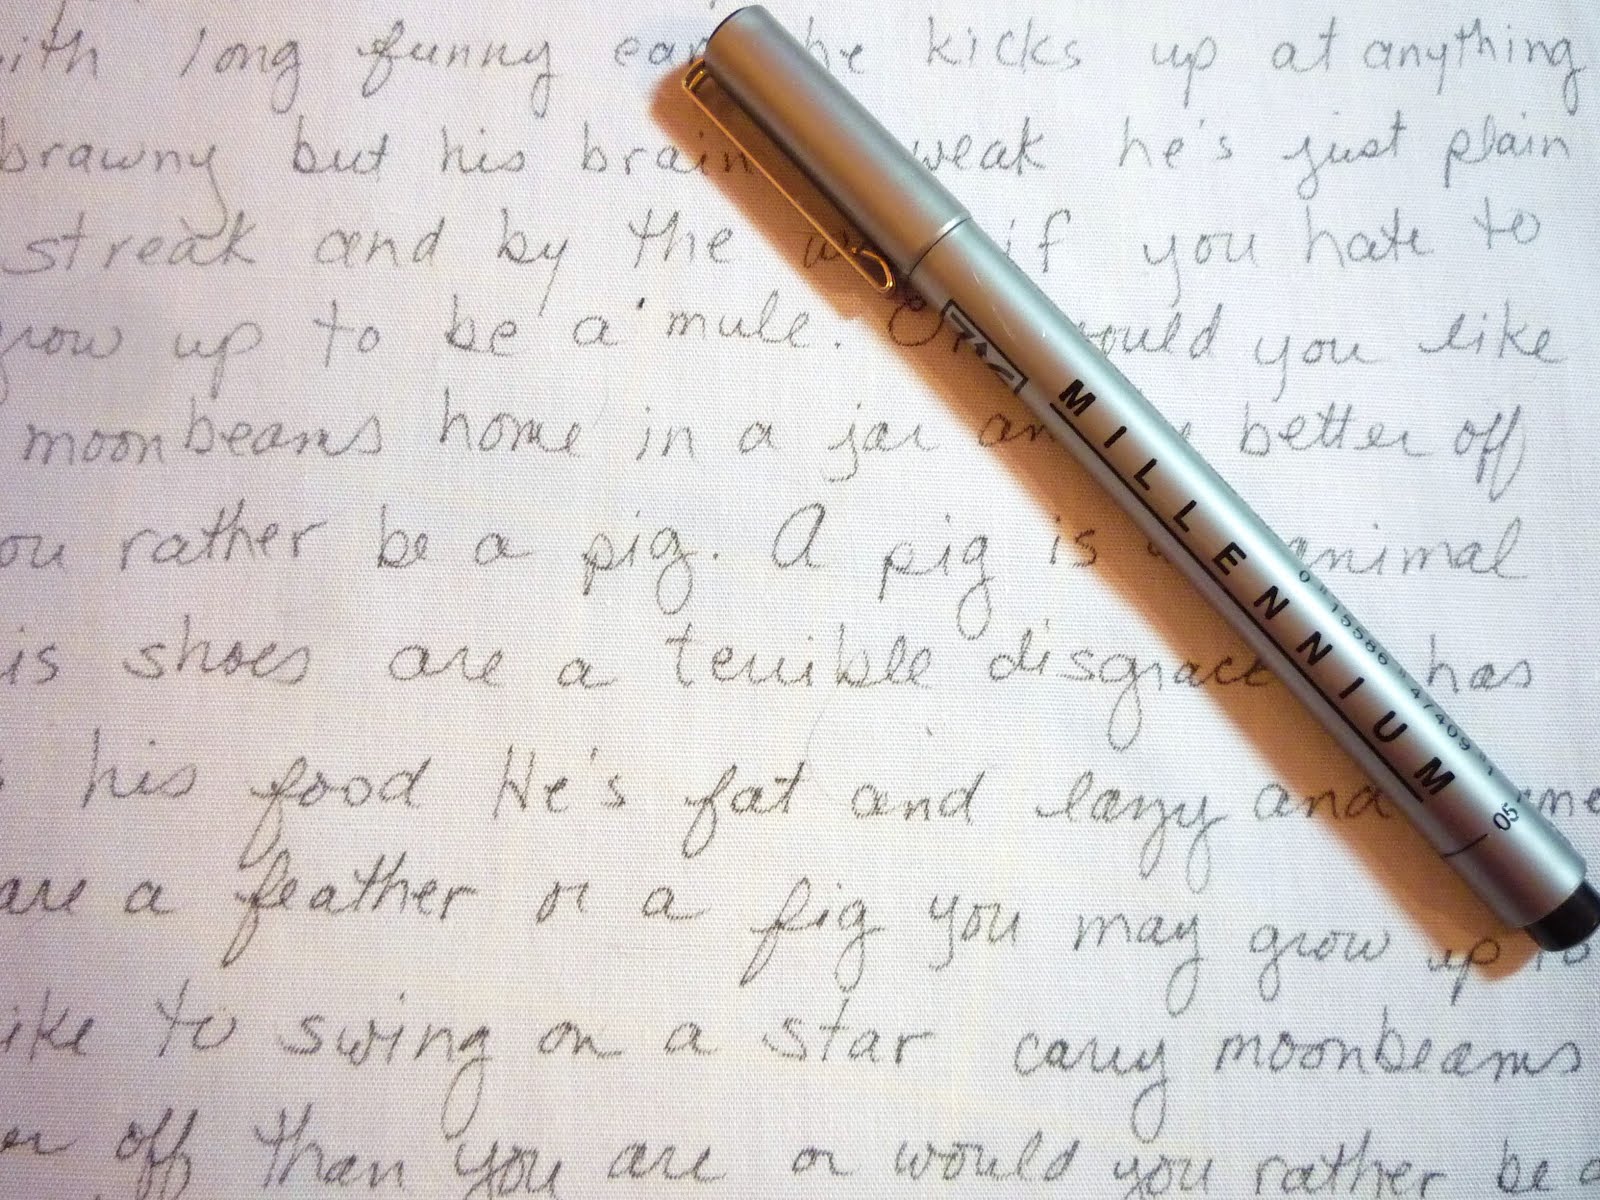 ith long funny ears he kicks up at anything
brawny but his brain weak he's just plain
streak and by the way if you hate to
grow up to be a mule. Or would you like
moonbeams home in a jar and be better off
ou rather be a pig. A pig is an animal
is shoes are a terrible disgrace has
his food He's fat and lazy and
are a feather or a fig you may grow up to
ike to swing on a star carry moonbeams
er off than you are or would you rather be a
MILLENNIUM
05